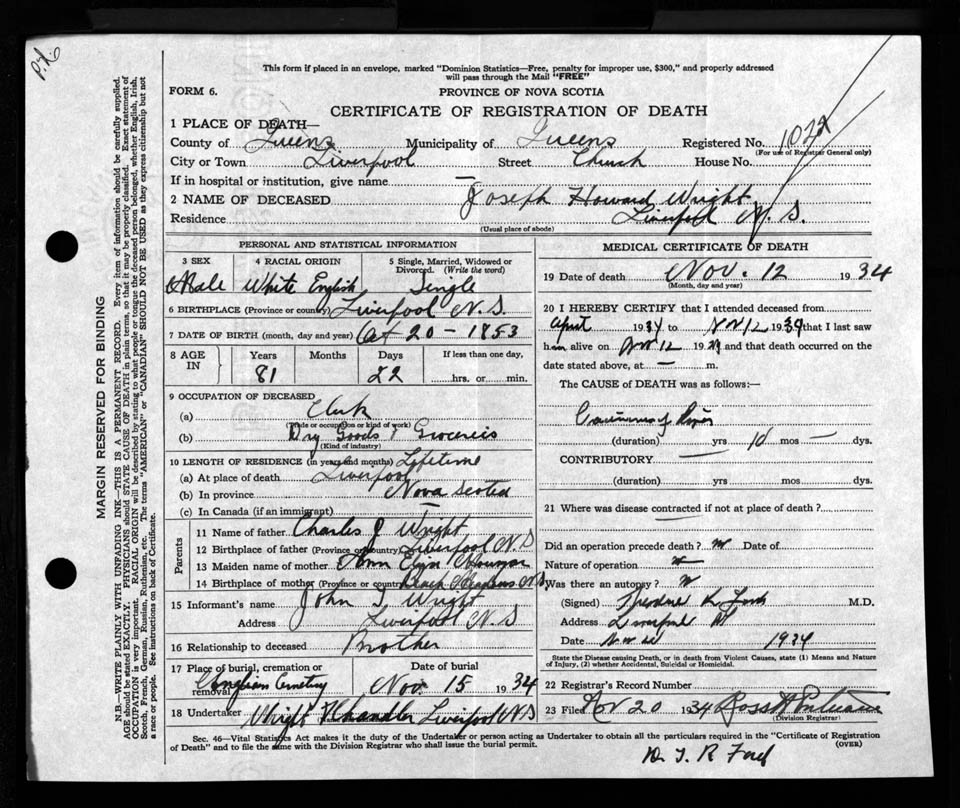 P.L.
This form if placed in an envelope, marked "Dominion Statistics—Free, penalty for improper use, $300," and properly addressed
will pass through the Mail "FREE"
FORM 6.
PROVINCE OF NOVA SCOTIA
CERTIFICATE OF REGISTRATION OF DEATH
1 PLACE OF DEATH—
County of Queens Municipality of Queens Registered No. 1072
(For use of Registrar General only)
City or Town Liverpool Street Church House No.
If in hospital or institution, give name —
2 NAME OF DECEASED Joseph Howard Wright
Residence Liverpool N. S.
(Usual place of abode)
PERSONAL AND STATISTICAL INFORMATION
3 SEX 4 RACIAL ORIGIN 5 Single, Married, Widowed or Divorced. (Write the word)
Male White English Single
6 BIRTHPLACE (Province or country) Liverpool N.S.
7 DATE OF BIRTH (month, day and year) Oct 20 - 1853
8 AGE IN Years Months Days If less than one day,
81 22 hrs. or min.
9 OCCUPATION OF DECEASED
(a) Clerk
(Trade or occupation or kind of work)
(b) Dry Goods & Groceries
(Kind of industry)
10 LENGTH OF RESIDENCE (in years and months) Lifetime
(a) At place of death Liverpool
(b) In province Nova Scotia
(c) In Canada (if an immigrant) —
Parents
11 Name of father Charles J Wright
12 Birthplace of father (Province or country) Liverpool N.S
13 Maiden name of mother Ann
14 Birthplace of mother (Province or country) N.S.
15 Informant's name John Wright
Address Liverpool N.S
16 Relationship to deceased Brother
17 Place of burial, cremation or removal Date of burial
Cemetery Nov. 15 1934
18 Undertaker Wright & Chandler Liverpool N.S
MEDICAL CERTIFICATE OF DEATH
19 Date of death Nov. 12 1934
(Month, day and year)
20 I HEREBY CERTIFY that I attended deceased from
April 1934 to Nov 12 1934 that I last saw
him alive on Nov 12 1934 and that death occurred on the
date stated above, at — m.
The CAUSE of DEATH was as follows:—
(duration) yrs 10 mos — dys.
CONTRIBUTORY —
(duration) yrs. mos. dys.
21 Where was disease contracted if not at place of death?
Did an operation precede death? Date of
Nature of operation
Was there an autopsy?
(Signed) M.D.
Address Liverpool
Date 1934
State the Disease causing Death, or in death from Violent Causes, state (1) Means and Nature of Injury, (2) whether Accidental, Suicidal or Homicidal.
22 Registrar's Record Number
23 Filed Nov 20 1934 Ross
(Division Registrar)
Sec. 46—Vital Statistics Act makes it the duty of the Undertaker or person acting as Undertaker to obtain all the particulars required in the "Certificate of Registration
of Death" and to file the same with the Division Registrar who shall issue the burial permit. (OVER)
MARGIN RESERVED FOR BINDING
N.B.—WRITE PLAINLY WITH UNFADING INK—THIS IS A PERMANENT RECORD. Every item of information should be carefully supplied.
AGE should be stated EXACTLY. PHYSICIANS should STATE CAUSE OF DEATH in plain terms, so that it may be properly classified. Exact statement of
OCCUPATION is very important. RACIAL ORIGIN will be described by stating to what people or tongue the deceased person belonged, whether English, Irish,
Scotch, French, German, Russian, Ruthenian, etc. The terms "AMERICAN" or "CANADIAN" SHOULD NOT BE USED as they express citizenship but not
a race or people. See instructions on back of Certificate.